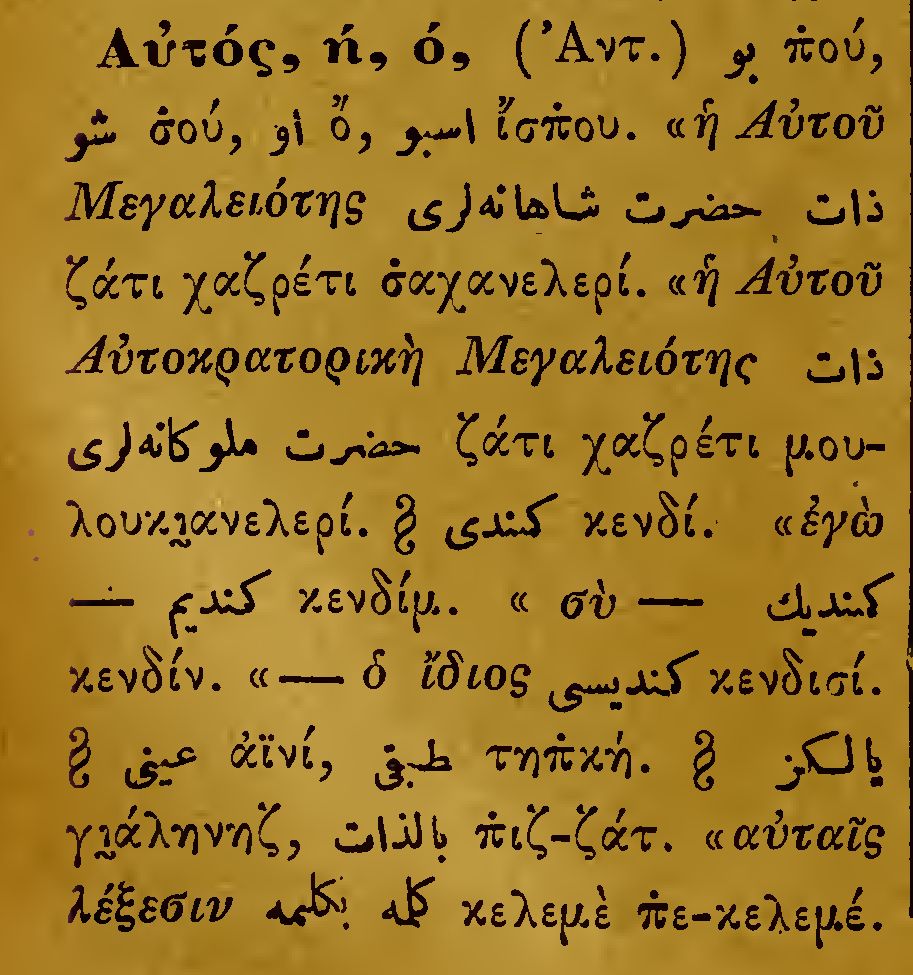 Αὐτός, ή, ό, (Ἀντ.) بو π̇ού,
شو σ̇ού, او ὄ, اسبو ἴσπ̇ου. «ἡ Αὐτοῦ
Μεγαλειότης ذات حضرت شاهانه‌لری
ζάτι χαζρέτι σ̇αχανελερί. «ἡ Αὐτοῦ
Αὐτοκρατορικὴ Μεγαλειότης ذات
حضرت ملوكانه‌لری ζάτι χαζρέτι μου-
λουκι̯ανελερί. § كندی κενδί. «ἐγὼ
— كنديم κενδίμ. « σὺ — كنديك
κενδίν. «— ὁ ἴδιος كنديسی κενδισί.
§ عينی ἀϊνί, طبقی τηπ̇κή. § يالكز
γι̯άληνηζ, بالذات π̇ιζ-ζάτ. «αὐταῖς
λέξεσιν كله بكلمه κελεμὲ π̇ε-κελεμέ.